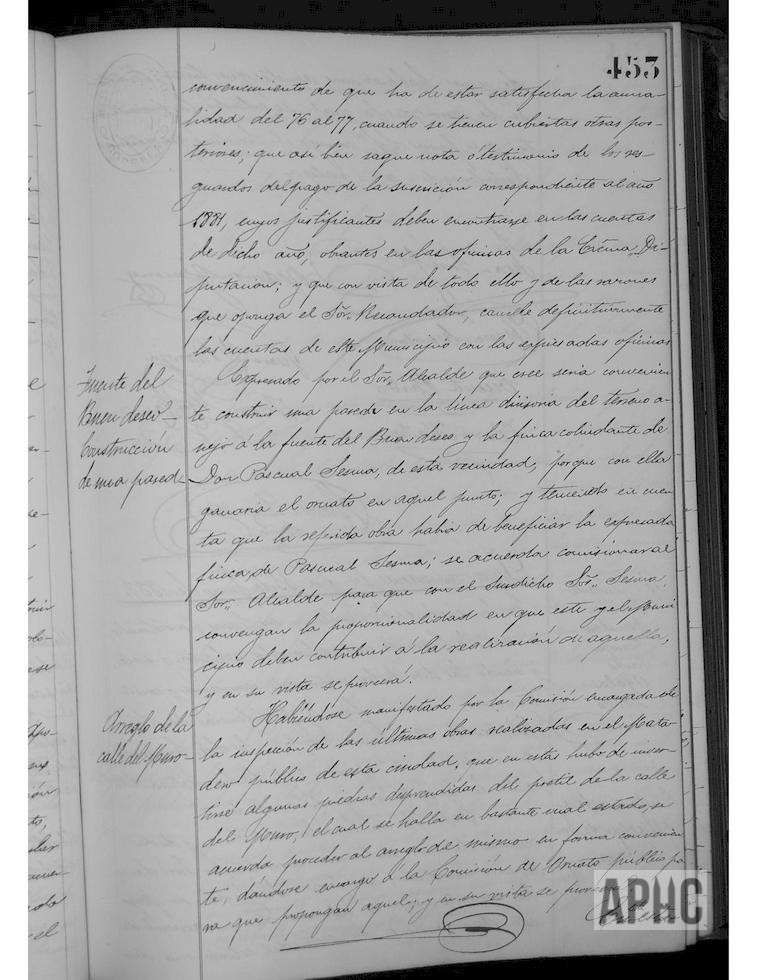 453
convencimiento de que ha de estar satisfecha la anua-
lidad del 76 al 77, cuando se tienen cubiertas otras pos-
teriores; que asi bien saque nota ó testimonio de los res-
guardos del pago de la suscrición correspondiente al año
1881, cuyos justificantes deben encontrarse en las cuentas
de dicho año, obrantes en las oficinas de la Excma. Di-
putación; y que con vista de todo ello y de las razones
que oponga el Sor. Recaudador, cancele definitivamente
las cuentas de este Municipio con las expresadas oficinas
Fuente del
Buen deseo
Construccion
de una pared
Expresado por el Sor. Alcalde que cree seria convenien-
te construir una pared en la línea divisoria del terreno a-
nejo á la fuente del Buen deseo y la finca colindante de
Don Pascual Sesma, de esta vecindad, porque con ella
ganaria el ornato en aquel punto; y teniendo en cuen
ta que la referida obra habia de beneficiar la expresada
finca de Pascual Sesma; se acuerda comisionar al
Sor. Alcalde para que con el susodicho Sor. Sesma,
convengan la proporcionalidad en que este y el Muni
cipio deben contribuir á la realización de aquella,
y en su vista se proveerá.
Arreglo de la
calle del Muro
Habiéndose manifestado por la Comisión encargada de
la inspección de las últimas obras realizadas en el Mata
dero público de esta ciudad, que en estas hubo de inver-
tirse algunas piedras desprendidas del pretil de la calle
del Muro, el cual se halla en bastante mal estado, se
acuerda proceder al arreglo del mismo en forma convenien
te, dándose encargo á la Comisión de Ornato público pa
ra que propongan aquel; y en su vista se proveerá
APHC